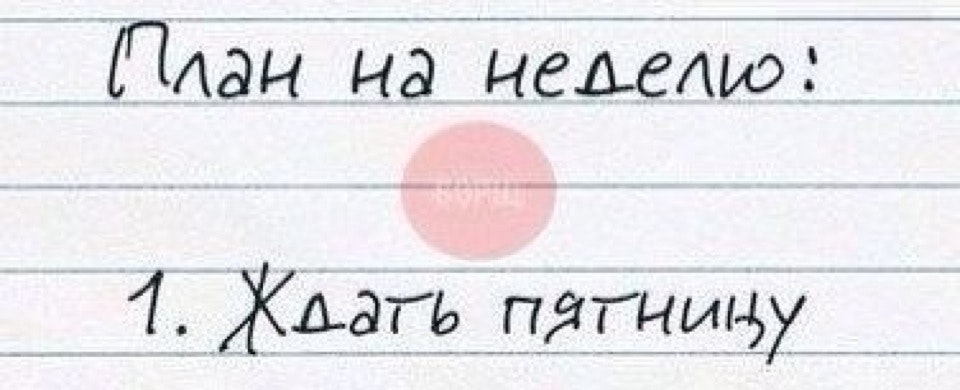 План на неделю:
БОРЩ
1. Ждать пятницу